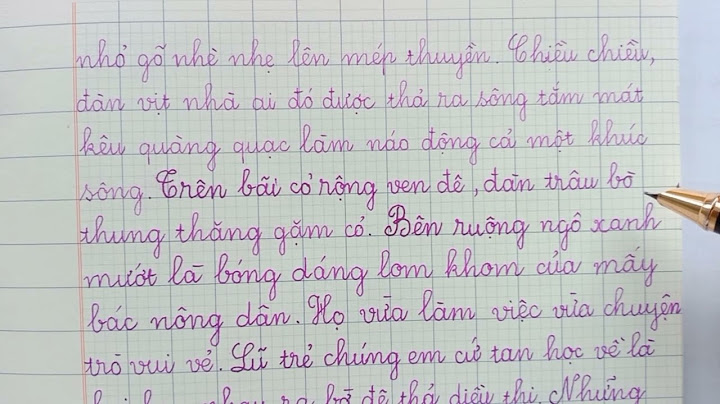 nhỏ gõ nhè nhẹ lên mép thuyền. Chiều chiều,
đàn vịt nhà ai đó được thả ra sông tắm mát
kêu quàng quạc làm náo động cả một khúc
sông. Trên bãi cỏ rộng ven đê, đàn trâu bò
thung thăng gặm cỏ. Bên ruộng ngô xanh
mướt là bóng dáng lom khom của mấy
bác nông dân. Họ vừa làm việc vừa chuyện
trò vui vẻ. Lũ trẻ chúng em cứ tan học về là
ra bờ đê thả diều thi. Những